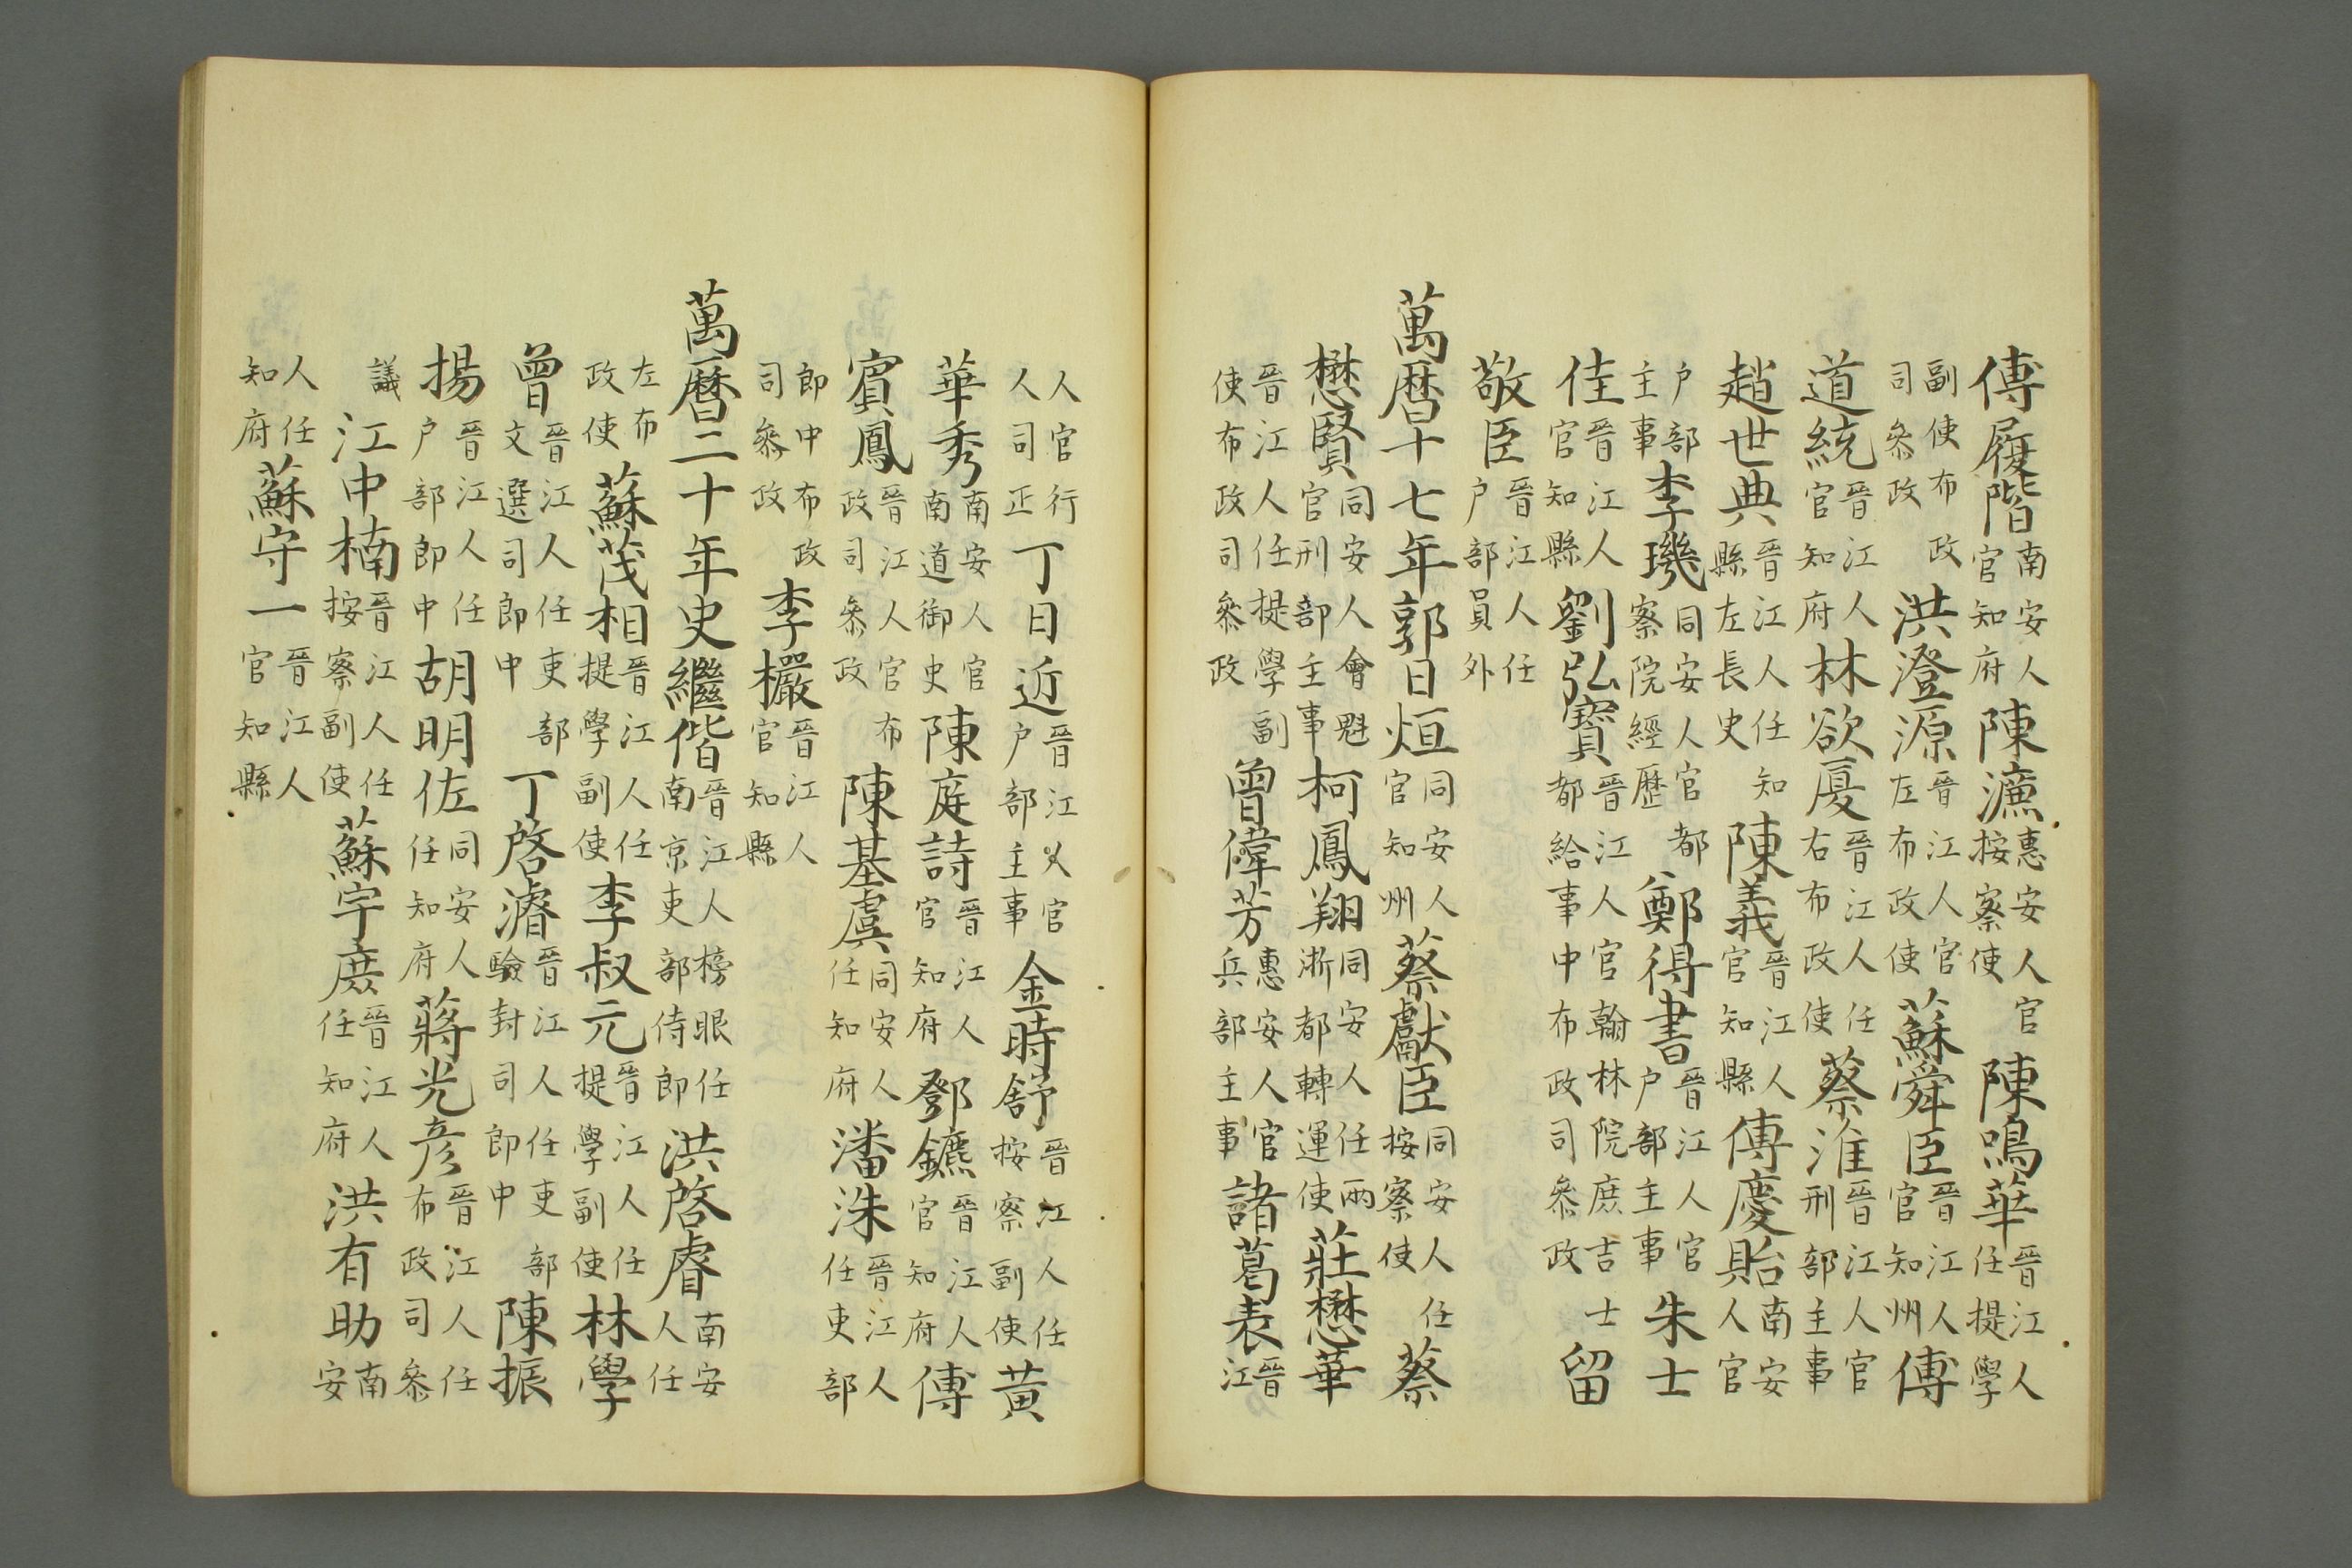 傅履階南安人官知府陳濂惠安人官按察使陳鳴華晉江人任提學
副使布政司叅政洪澄源晉江人官左布政使蘇舜臣晉江人官知州傅
道統晉江人官知府林欲厦晉江人任右布政使蔡淮晉江人官刑部主事
趙世典晉江人任知縣左長史陳義晉江人官知縣傅慶貽南安人官
户部主事李璣同安人官都察院經歷鄭得書晉江人官户部主事朱士
佳晉江人官知縣劉弘寶晉江人官翰林院庶吉士都給事中布政司叅政留
敬臣晉江人任户部員外
萬曆十七年郭日烜同安人官知州蔡獻臣同安人任按察使蔡
懋賢同安人會魁官刑部主事柯鳳翔同安人任兩浙都轉運使莊懋華
晉江人任提學副使布政司叅政曾偉芳惠安人官兵部主事諸葛表晉江
人官行人司正丁日近晉江人官户部主事金時舒晉江人任按察副使黃
華秀南安人官南道御史陳庭詩晉江人官知府鄧鑣晉江人官知府傅
賓鳳晉江人官布政司叅政陳基虞同安人任知府潘洙晉江人任吏部
郎中布政司叅政李欕晉江人官知縣
萬曆二十年史繼偕晉江人榜眼任南京吏部侍郎洪啓睿南安人任
左布政使蘇茂相晉江人任提學副使李叔元晉江人任提學副使林學
曾晉江人任吏部文選司郎中丁啓濬晉江人任吏部驗封司郎中陳振
揚晉江人任户部郎中胡明佐同安人任知府蔣光彦晉江人任布政司叅
議江中楠晉江人任按察副使蘇宇庶晉江人任知府洪有助南安
人任知府蘇守一晉江人官知縣